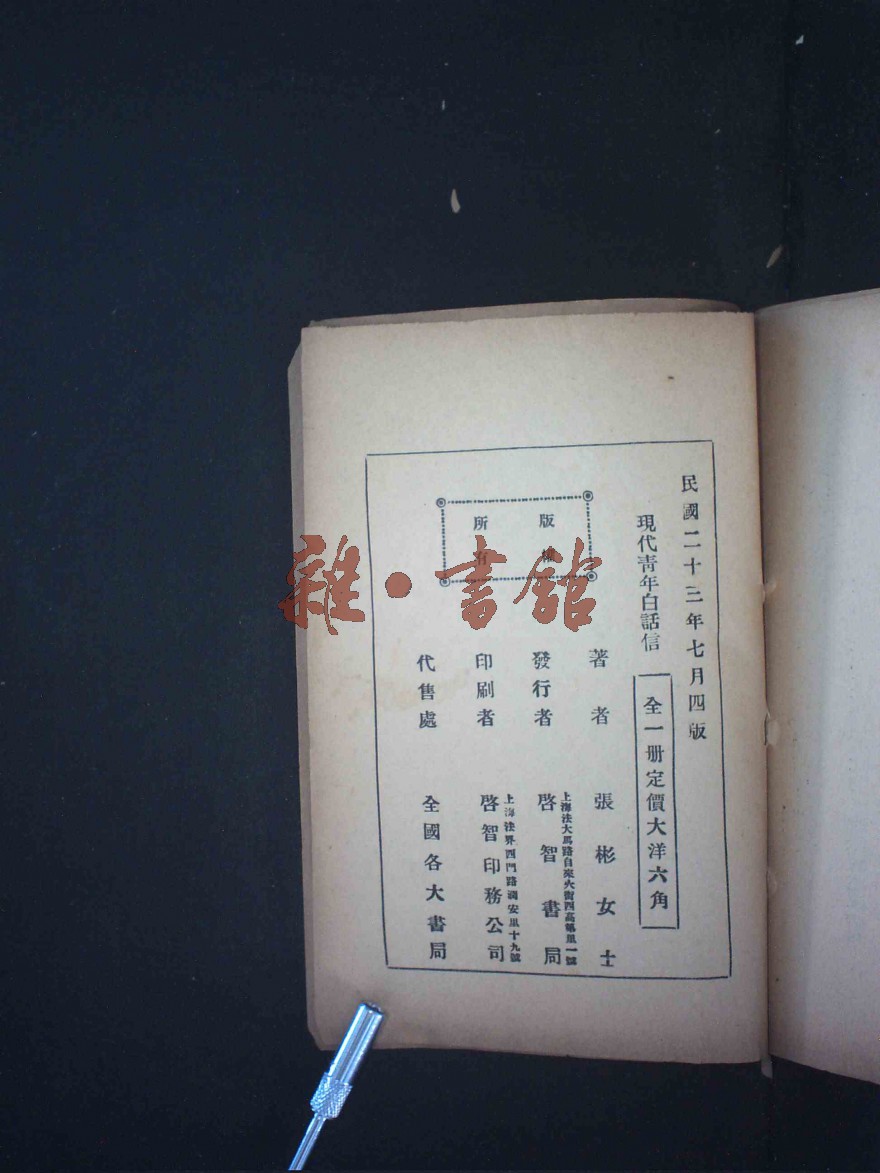 民國二十三年七月四版
現代青年白話信
全一册定價大洋六角
版權
所有
著者 張彬女士
發行者 啓智書局
上海法大馬路自來火街西高第里一號
印刷者 啓智印務公司
上海法界西門路潤安里十九號
代售處 全國各大書局
雜·書館